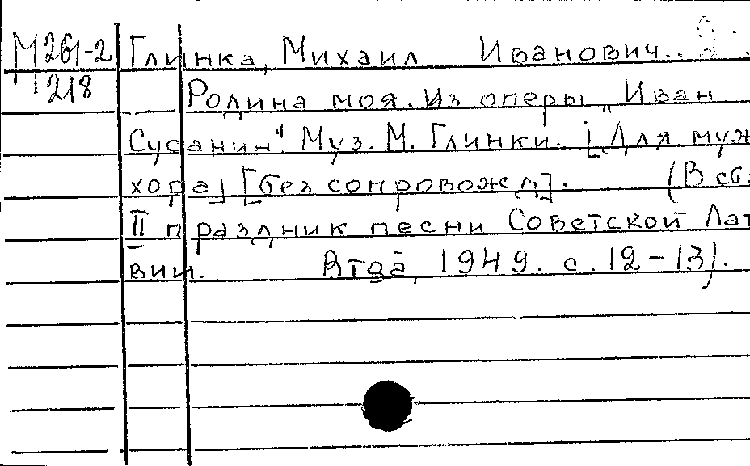 М261-2 Глинка, Михаил Иванович..
218 Родина моя. Из оперы „Иван
Сусанин". Муз. М. Глинки. [Для муж.
хора] [без сопровожд]. (В сб.
II праздник песни Советской Лат
вии. Rīgā, 1949. с. 12-13).